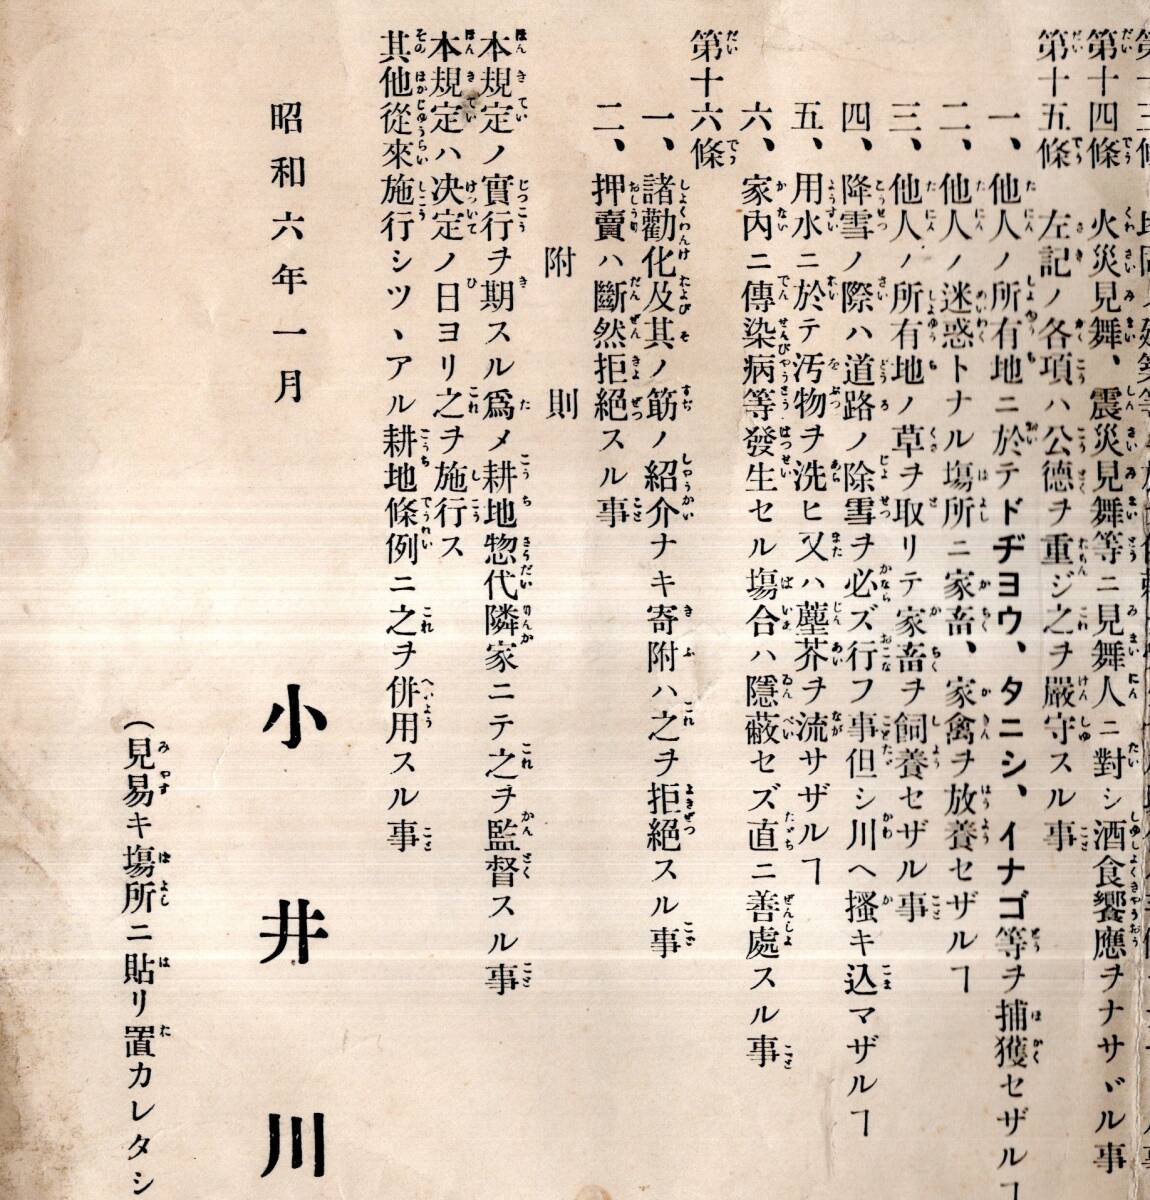 第十四條 火災見舞、震災見舞等ニ見舞人ニ對シ酒食饗應ヲナサヾル事
第十五條 左記ノ各項ハ公德ヲ重ジ之ヲ嚴守スル事
一、他人ノ所有地ニ於テドヂヨウ、タニシ、イナゴ等ヲ捕獲セザルヿ
二、他人ノ迷惑トナル塲所ニ家畜、家禽ヲ放養セザルヿ
三、他人ノ所有地ノ草ヲ取リテ家畜ヲ飼養セザル事
四、降雪ノ際ハ道路ノ除雪ヲ必ズ行フ事但シ川ヘ搔キ込マザルヿ
五、用水ニ於テ汚物ヲ洗ヒ又ハ塵芥ヲ流サザルヿ
六、家內ニ傳染病等發生セル塲合ハ隱蔽セズ直ニ善處スル事
第十六條
一、諸勸化及其ノ筋ノ紹介ナキ寄附ハ之ヲ拒絕スル事
二、押賣ハ斷然拒絕スル事
附則
本規定ノ實行ヲ期スル爲メ耕地惣代隣家ニテ之ヲ監督スル事
本規定ハ決定ノ日ヨリ之ヲ施行ス
其他從來施行シツヽアル耕地條例ニ之ヲ併用スル事
昭和六年一月
小井川
(見易キ塲所ニ貼リ置カレタシ